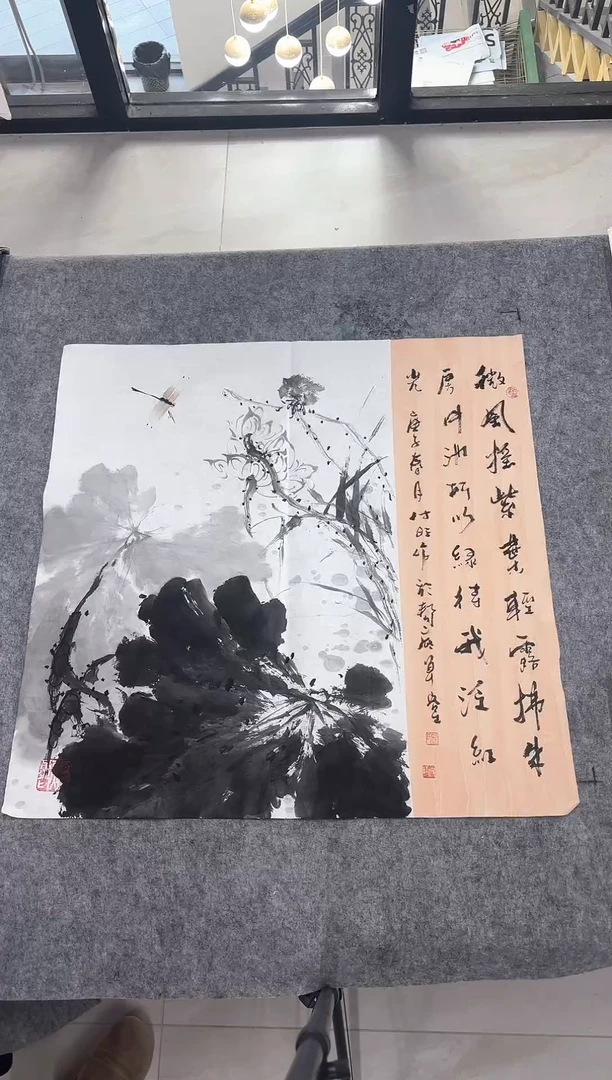 微風摇紫葉輕露拂朱
房中池所以緑待我泛紅
光 庚子春月付旺作於草堂